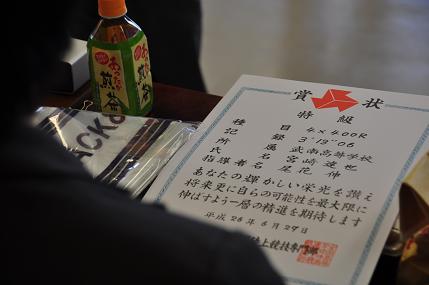 あったか
煎茶
ACKS
賞状
特級
種目 4×400R
記録 3'19"06
所属 武南高等学校
氏名 宮崎達也
指導者名 尾花伸
あなたの輝かしい栄光を讃え
将来更に自らの可能性を最大限に
伸ばすよう一層の精進を期待します
平成26年6月27日
陸上競技専門部